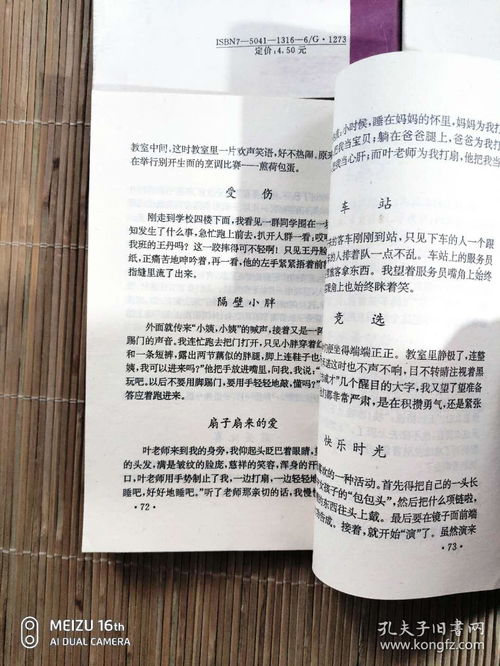 ISBN7—5041—1316—6/G·1273
定价:4.50元
教室中间,这时教室里一片欢声笑语,好不热闹,原来
在举行别开生面的烹调比赛——煎荷包蛋。
受伤
刚走到学校四楼下面,我看见一群同学围在一块
知发生了什么事,急忙跑上前去,扒开人群一看:哎呀
我班的王丹吗?这一跤摔得可不轻啊!只见王丹脸
纸,正痛苦地呻吟着,再一看,他的左手紧紧捂着前
指缝里流了出来。
隔壁小胖
外面就传来“小姨,小姨”的喊声,接着又是一阵
踢门的声音。我连忙跑去把门打开,只见小胖穿着红
和一条短裤,露出两节藕似的胖腿,脚上连鞋子也
姨,我可以进来吗?”他把手放进嘴里,问我,我说:“
玩吧,以后不要用脚踢门,要用手轻轻地敲,懂吗?”
答应着跑进来。
扇子扇来的爱
叶老师来到我的身旁,我仰起头眨巴着眼睛,
的头发,满是皱纹的脸庞,慈祥的笑容,浑身的汗
口,叶老师用手势制止了我,一边打扇,一边轻轻地
睡吧,好好地睡吧。”听了老师那亲切的话,我慢慢
·72·
小时候,睡在妈妈的怀里,妈妈为我打
我当宝贝;躺在爸爸腿上,爸爸为我打
我当心肝;而叶老师为我打扇,他把我当
车站
的客车刚刚到站,只见下车的人一个跟
的人排着队一点不乱。车站上的服务员
旅客拿东西。我望着服务员嘴角上始终
角上也始终眯着笑。
竞选
们便坐得端端正正。教室里静极了,连整
长进这时也不声不响,目不转睛注视着黑
成才”几个醒目的大字,我又望了望准备
们都非常严肃,是在积攒勇气,还是紧张
快乐时光
欢的一种活动。首先得把自己的一头长
女孩子的“包包头”,然后把什么项链啦,
的东西往头上戴。最后要在镜子而前端
合成。接着,就开始“演”了。虽然演来
73·
MEIZU 16th
AI DUAL CAMERA
孔夫子旧书网
www.kongfz.com